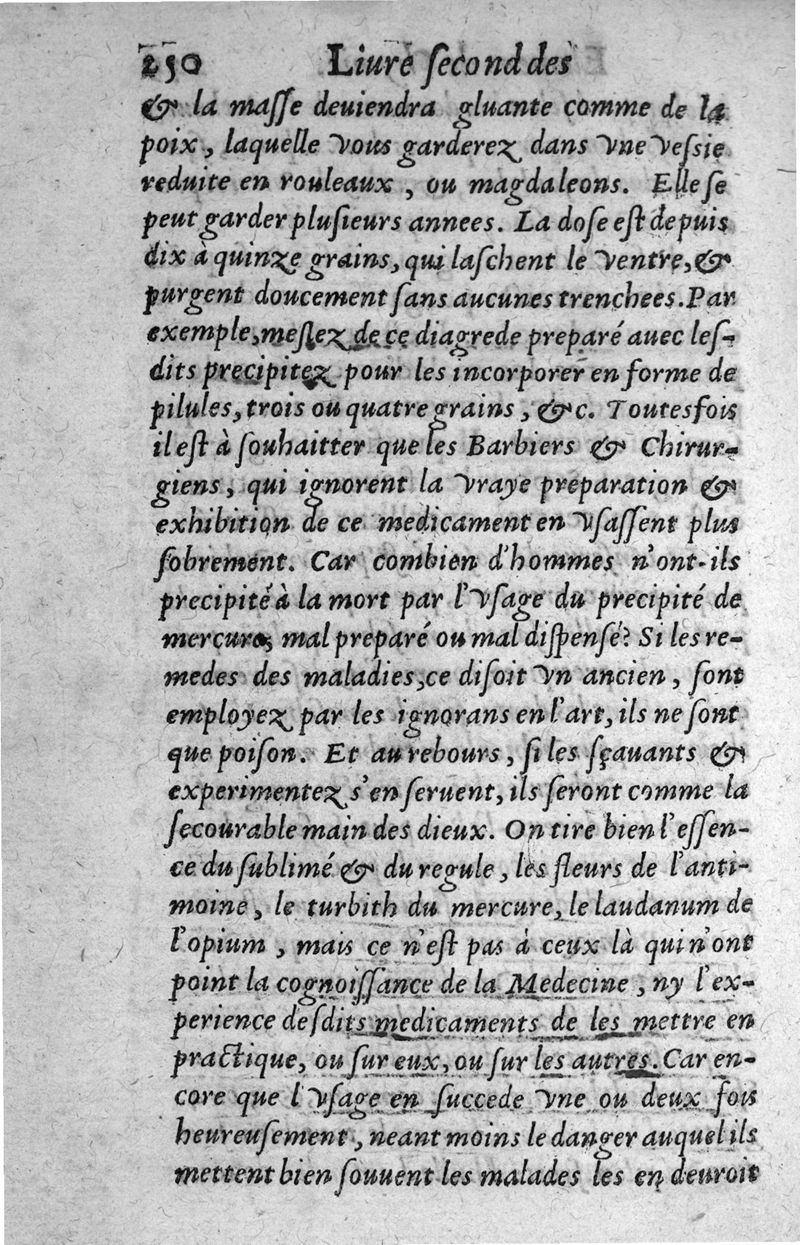 250 Liure ſecond des
& la maſſe deuiendra gluante comme de la
poix, laquelle vous garderez dans vne veſsie
reduite en rouleaux, ou magdaleons. Elle ſe
peut garder pluſieurs annees. La doſe eſt depuis
dix à quinze grains, qui laſchent le ventre, &
purgent doucement ſans aucunes trenchees. Par
exemple, meſlez de ce diagrede preparé auec leſ-
dits precipitez pour les incorporer en forme de
pilules, trois ou quatre grains, &c. Toutesfois
il eſt à ſouhaitter que les Barbiers & Chirur-
giens, qui ignorent la vraye preparation &
exhibition de ce medicament en vſaſſent plus
ſobrement. Car combien d'hommes n'ont-ils
precipité à la mort par l'vſage du precipité de
mercure, mal preparé ou mal diſpenſé? Si les re-
medes des maladies, ce diſoit vn ancien, ſont
employez par les ignorans en l'art, ils ne ſont
que poiſon. Et au rebours, ſi les ſçauants &
experimentez s'en ſeruent, ils ſeront comme la
ſecourable main des dieux. On tire bien l'eſſen-
ce du ſublimé & du regule, les fleurs de l'anti-
moine, le turbith du mercure, le laudanum de
l'opium, mais ce n'eſt pas à ceux là qui n'ont
point la cognoiſſance de la Medecine, ny l'ex-
perience deſdits medicaments de les mettre en
practique, ou ſur eux, ou ſur les autres. Car en-
core que l'vſage en ſuccede vne ou deux fois
heureuſement, neantmoins le danger auquel ils
mettent bien ſouuent les malades les en deuroit